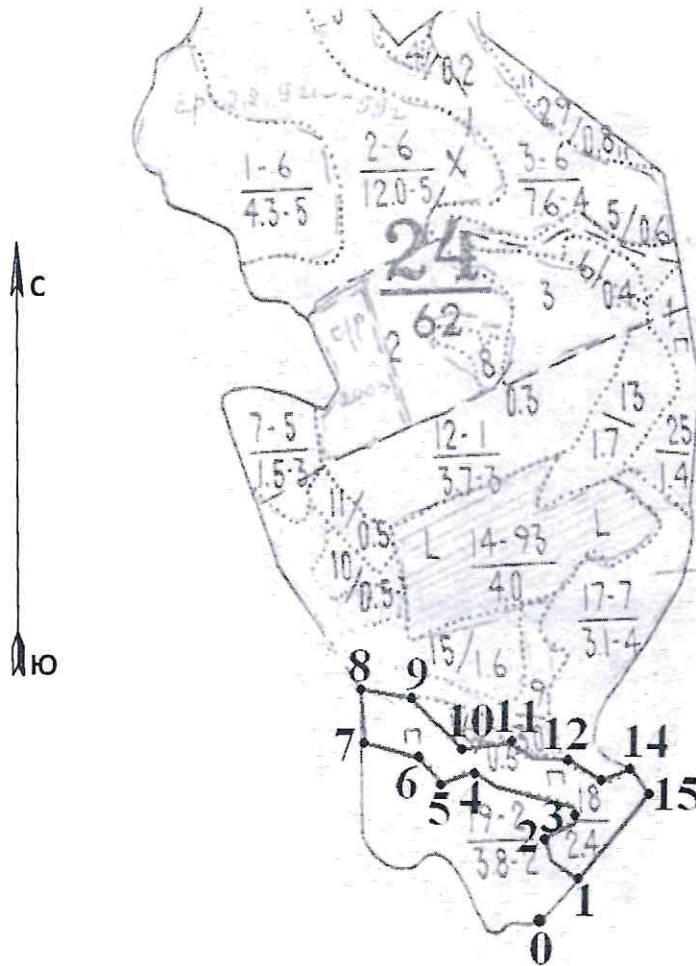 4/0.2
29/0.8
1-6
4.3-5
2-6
12.0-5
3-6
7.6-4
5/0.6
6/0.4
С
24
62
3
2
8
2003
0.3
7-5
1.5-3
12-1
3.7-3
13
1.7
25
1.4
11/0.5
10/0.5
L
14-93
4.0
L
17-7
3.1-4
15/1.6
Ю
8
9
10
11
12
14
15
7
6
5
4
0.5
3
2
18
2.4
19-2
3.8-2
1
0